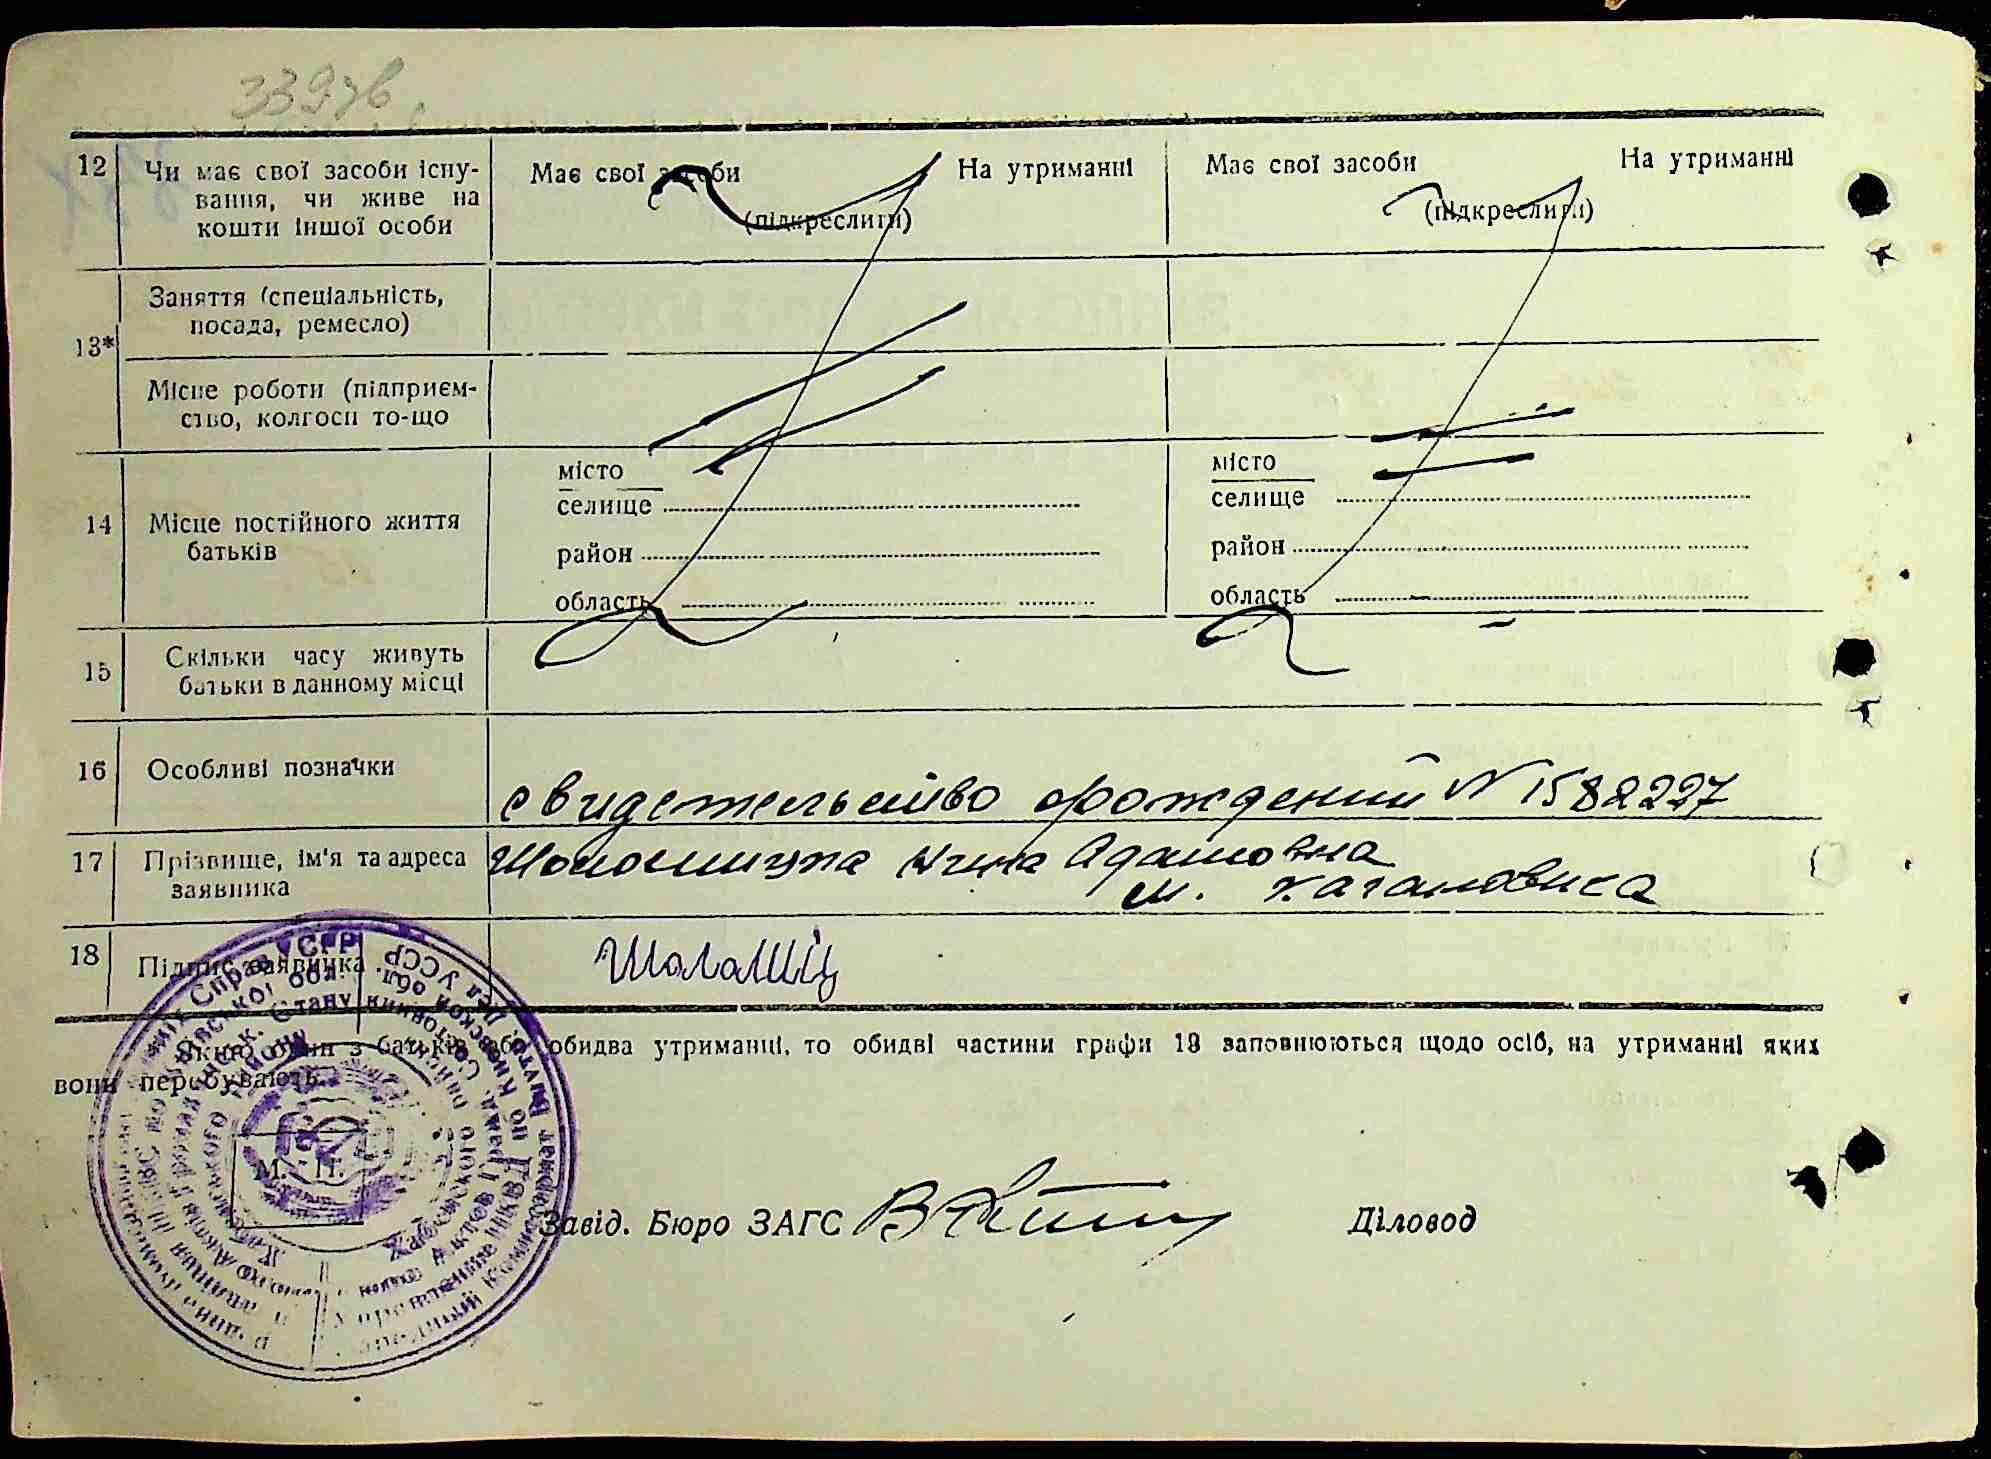 33976
12 Чи має свої засоби існу-
вання, чи живе на
кошти іншої особи
Має свої засоби На утриманні
(підкреслити)
Має свої засоби На утриманні
(підкреслити)
13*
Заняття (спеціальність,
посада, ремесло)
Місце роботи (підприєм-
ство, колгосп то-що
14 Місце постійного життя
батьків
місто
селище
район
область
місто
селище
район
область
15 Скільки часу живуть
батьки в данному місці
16 Особливі позначки
свидетельство о рождении N 1582227
17 Прізвище, ім'я та адреса
заявника
Адамовна
м. Кагановича
18 Підпис заявника
обидва утриманці, то обидві частини графи 13 заповнюються щодо осіб, на утриманні яких
вони перебувають.
М. П.
Завід. Бюро ЗАГС
Діловод